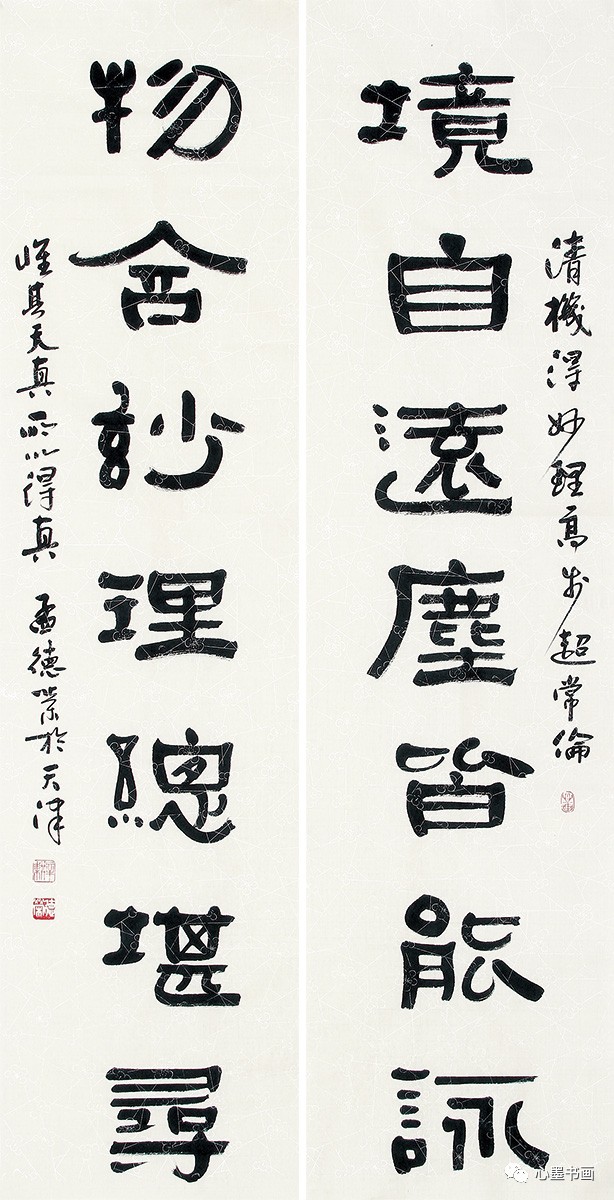 清機得妙理高步超常倫
境自遠塵皆能詠
物含妙理總堪尋
唯其天真所以得真 孟德於天津
心墨书画